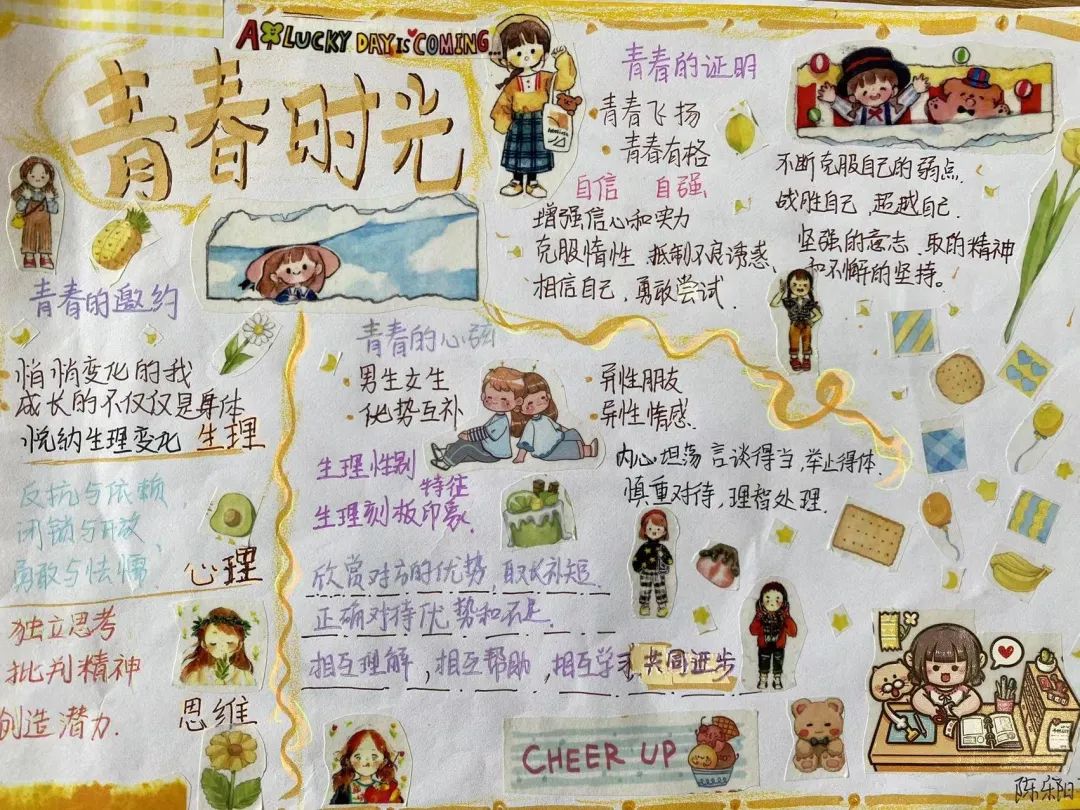 A LUCKY DAY IS COMING...
青春时光
青春的邀约
悄悄变化的我
成长的不仅仅是身体
悦纳生理变化 生理
反抗与依赖
闭锁与开放
勇敢与怯懦、 心理
独立思考
批判精神
创造潜力. 思维
青春的证明
·青春飞扬
·青春有格
自信 自强
增强信心和实力
克服惰性、抵制不良诱惑、
相信自己、勇敢尝试.
不断克服自己的弱点.
战胜自己、超越自己.
坚强的意志、取的精神
和不懈的坚持。
青春的心弦
·男生女生
·优势互补
·异性朋友
·异性情感.
生理性别
特征
生理刻板印象.
内心坦荡 言谈得当、举止得体.
慎重对待,理智处理.
欣赏对方的优势,取长补短.
正确对待优势和不足.
相互理解,相互帮助,相互学习 共同进步
CHEER UP